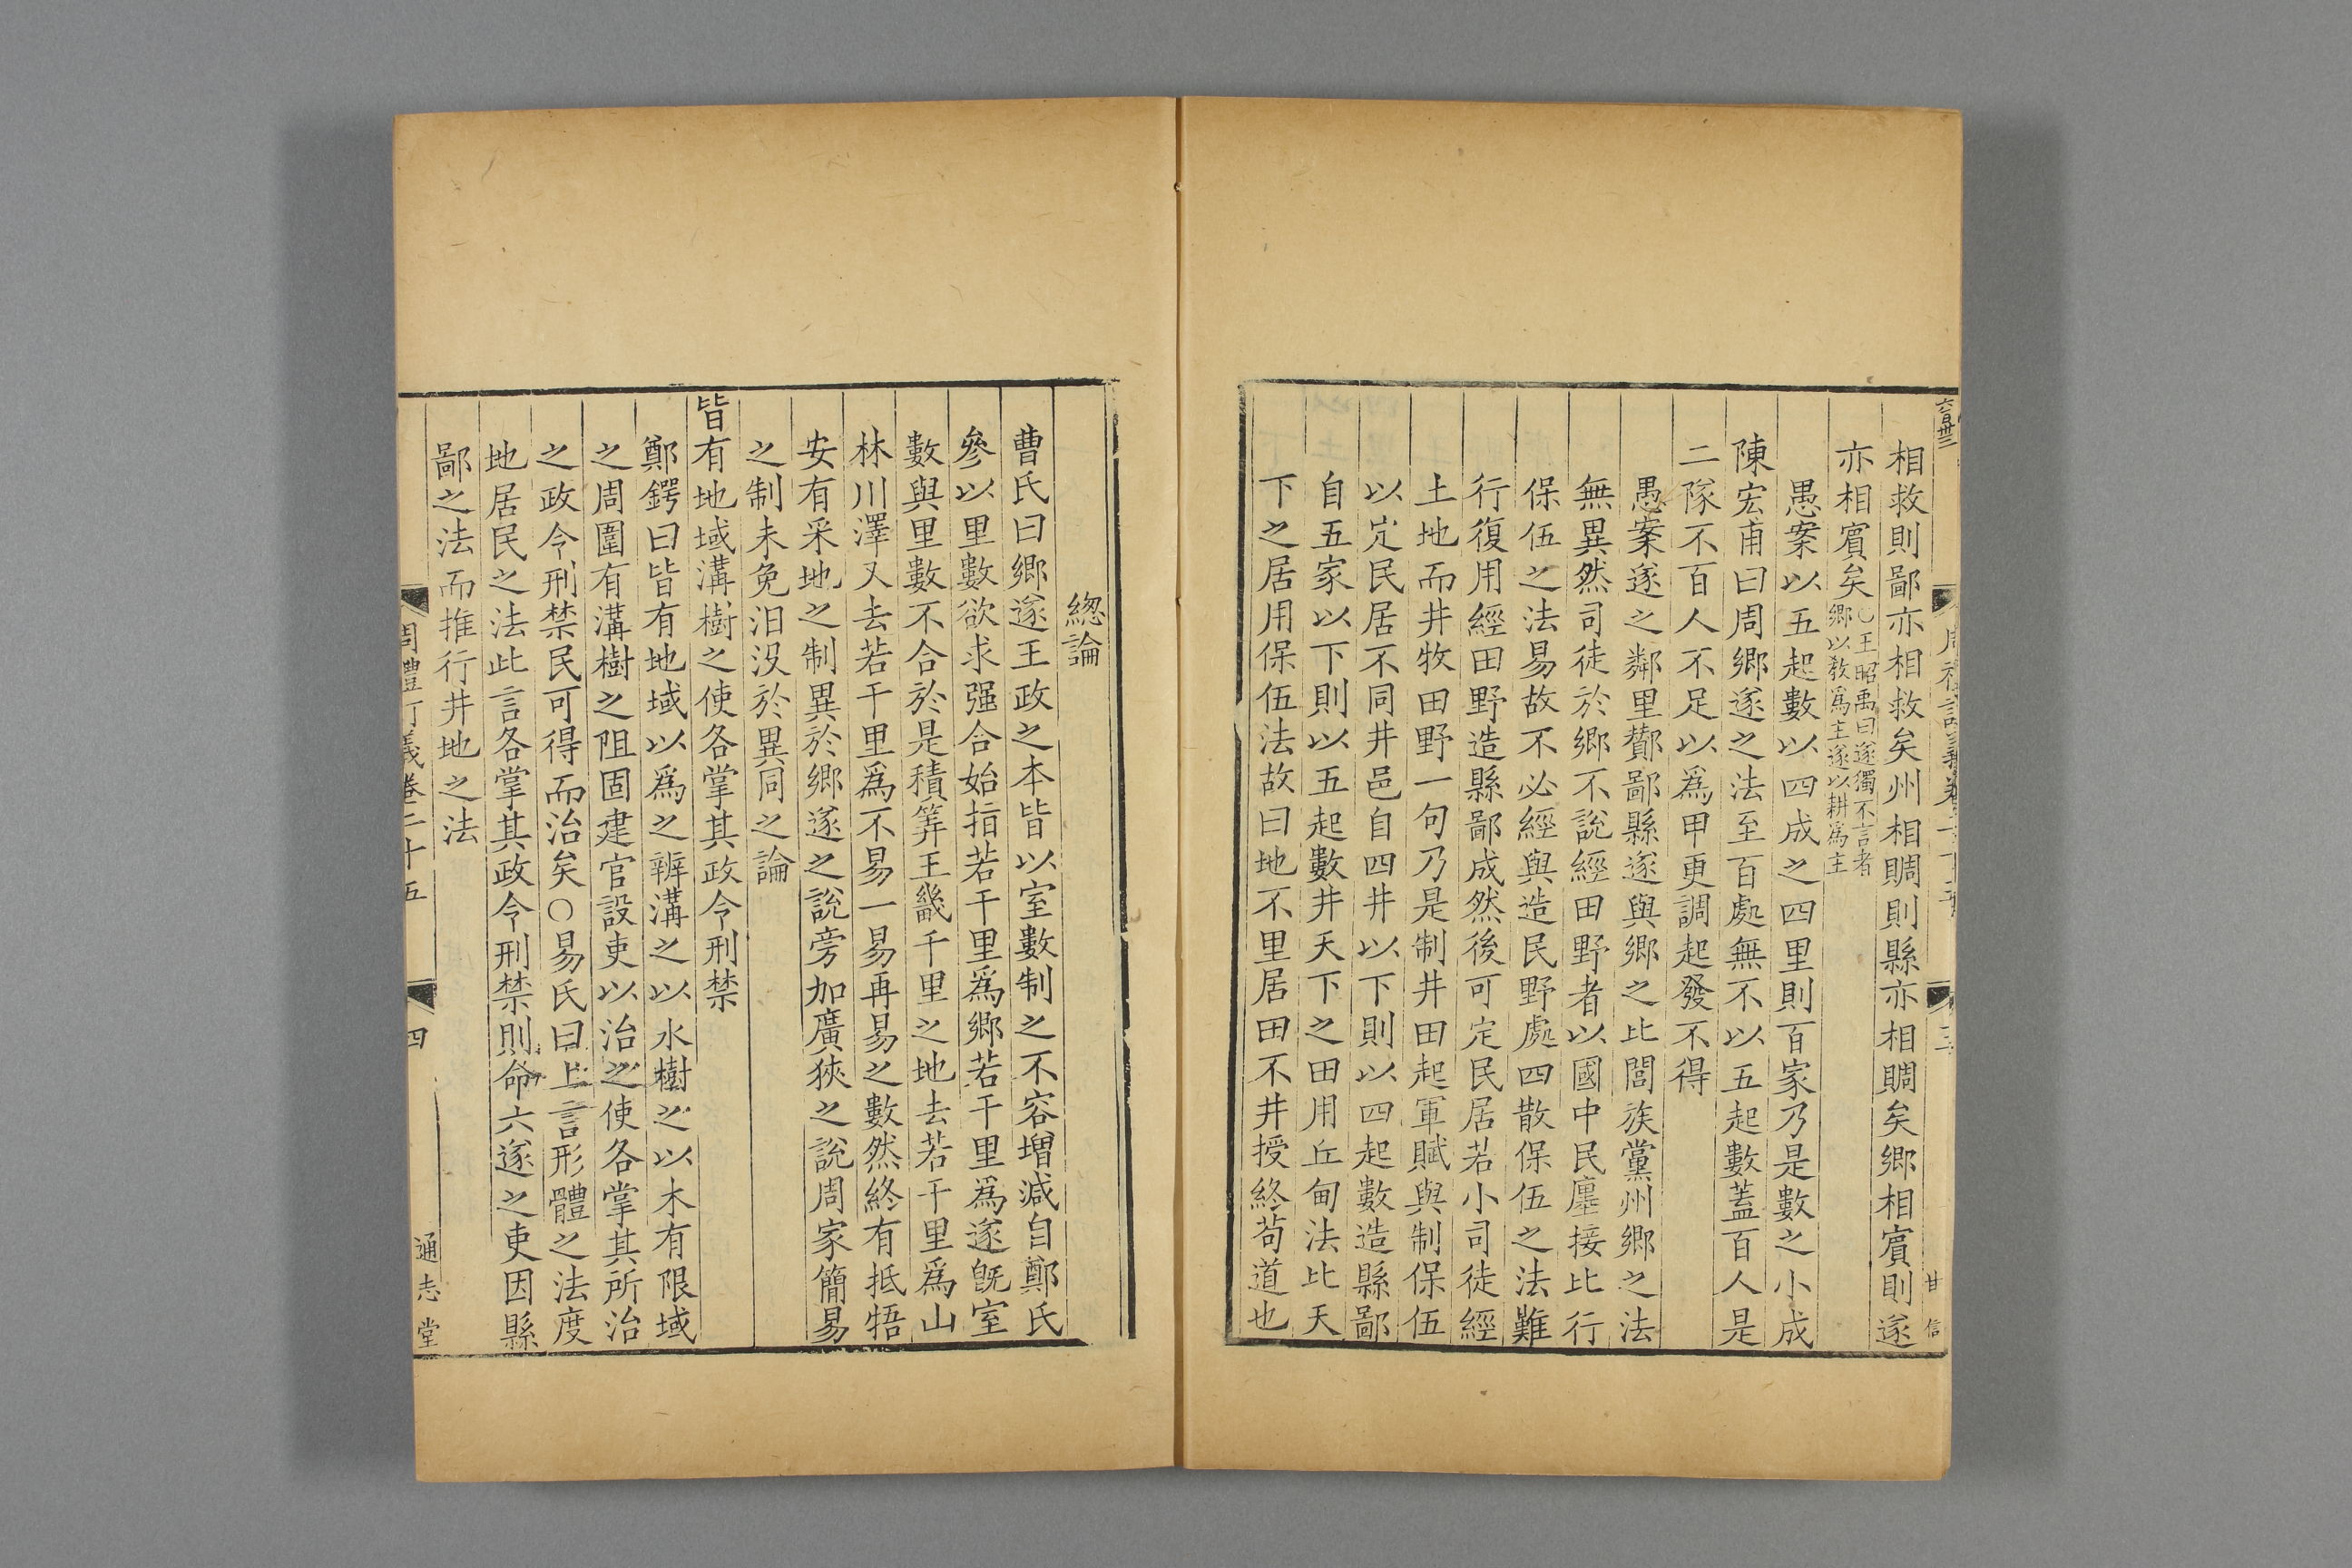 六百卅三
相救則鄙亦相救矣州相賙則縣亦相賙矣鄉相賔則遂
亦相賔矣
○王昭禹曰遂獨不言者
鄉以敎爲主遂以耕爲主
愚案以五起數以四成之四里則百家乃是數之小成
陳宏甫曰周鄉遂之法至百處無不以五起數蓋百人是
二隊不百人不足以爲甲更調起發不得
愚案遂之鄰里酇鄙縣遂與鄉之比閭族黨州鄉之法
無異然司徒於鄉不說經田野者以國中民廛接比行
保伍之法易故不必經與造民野處四散保伍之法難
行復用經田野造縣鄙成然後可定民居若小司徒經
土地而井牧田野一句乃是制井田起軍賦與制保伍
以㝎民居不同井邑自四井以下則以四起數造縣鄙
自五家以下則以五起數井天下之田用丘甸法比天
下之居用保伍法故曰地不里居田不井授終苟道也
三
甘
信
緫論
曹氏曰鄉遂王政之本皆以室數制之不容增減自鄭氏
參以里數欲求强合始指若干里爲鄉若干里爲遂旣室
數與里數不合於是積筭王畿千里之地去若干里爲山
林川澤又去若干里爲不易一易再易之數然終有抵牾
安有采地之制異於鄉遂之說旁加廣狹之說周家簡易
之制未免汨沒於異同之論
皆有地域溝樹之使各掌其政令刑禁
鄭鍔曰皆有地域以爲之辨溝之以水樹之以木有限域
之周圍有溝樹之阻固建官設吏以治之使各掌其所治
之政令刑禁民可得而治矣○易氏曰上言形體之法度
地居民之法此言各掌其政令刑禁則命六遂之吏因縣
鄙之法而推行井地之法
周禮訂義卷二十五
四
通志堂